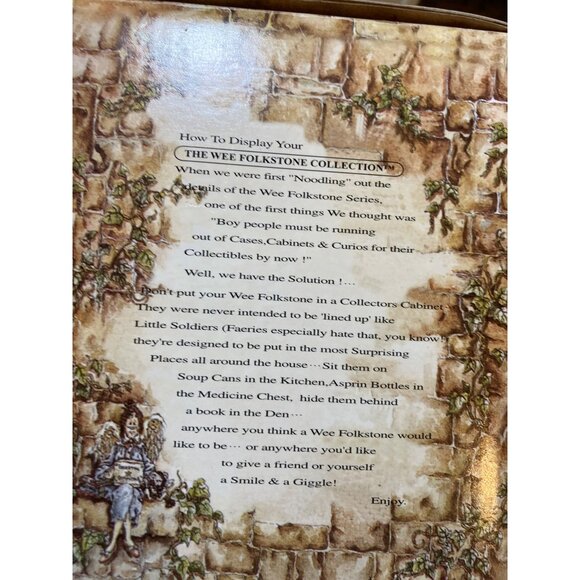 How To Display Your
THE WEE FOLKSTONE COLLECTION™
When we were first "Noodling" out the
details of the Wee Folkstone Series,
one of the first things We thought was
"Boy people must be running
out of Cases,Cabinets & Curios for their
Collectibles by now !"
Well, we have the Solution !···
Don't put your Wee Folkstone in a Collectors Cabinet···
They were never intended to be 'lined up' like
Little Soldiers (Faeries especially hate that, you know!)
they're designed to be put in the most Surprising
Places all around the house···Sit them on
Soup Cans in the Kitchen,Asprin Bottles in
the Medicine Chest, hide them behind
a book in the Den···
anywhere you think a Wee Folkstone would
like to be··· or anywhere you'd like
to give a friend or yourself
a Smile & a Giggle!
Enjoy.